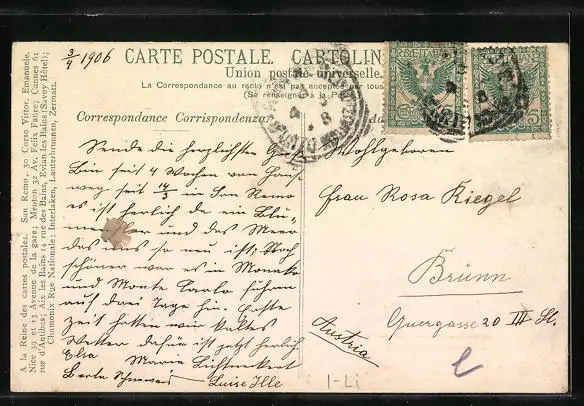 3/4 1906
CARTE POSTALE. CARTOLIN
Union postale universelle.
La Correspondance au recto n'est pas acceptée par tous
(Se renseigner à la Po
Correspondance Corrispondenza
A la Reine des cartes postales. San Remo, 30 Corso Vittor. Emanuele.
Nice 39 et 13 Avenue de la gare; Menton 32 Av. Felix Faure; Cannes 61
rue d'Antibes; Aix les Bains 14 rue des Bains, Evian les Bains (Savoy Hôtel);
Chamonix Rue Nationale; Interlaken, Lauterbrunnen, Zermatt.
Sende die herzlichsten Grüße
Bin seit 4 Wochen von Haus
weg seit 14/3 in San Remo
es ist herlich de ein Blu-
men und das Meer
das uns so neu ist; Noch
schöner war es in Monako
und Monte Carlo fuhren
auf drei Tage hin. Erste
zeit hatten wir kaltes
Wetter dafür ist jetzt herlich
Elsa Marie
Berta Luise Ille
Wohlgeboren
Frau Rosa Kiegel
Brünn
Quergasse 20 III St.
Austria
1-Li